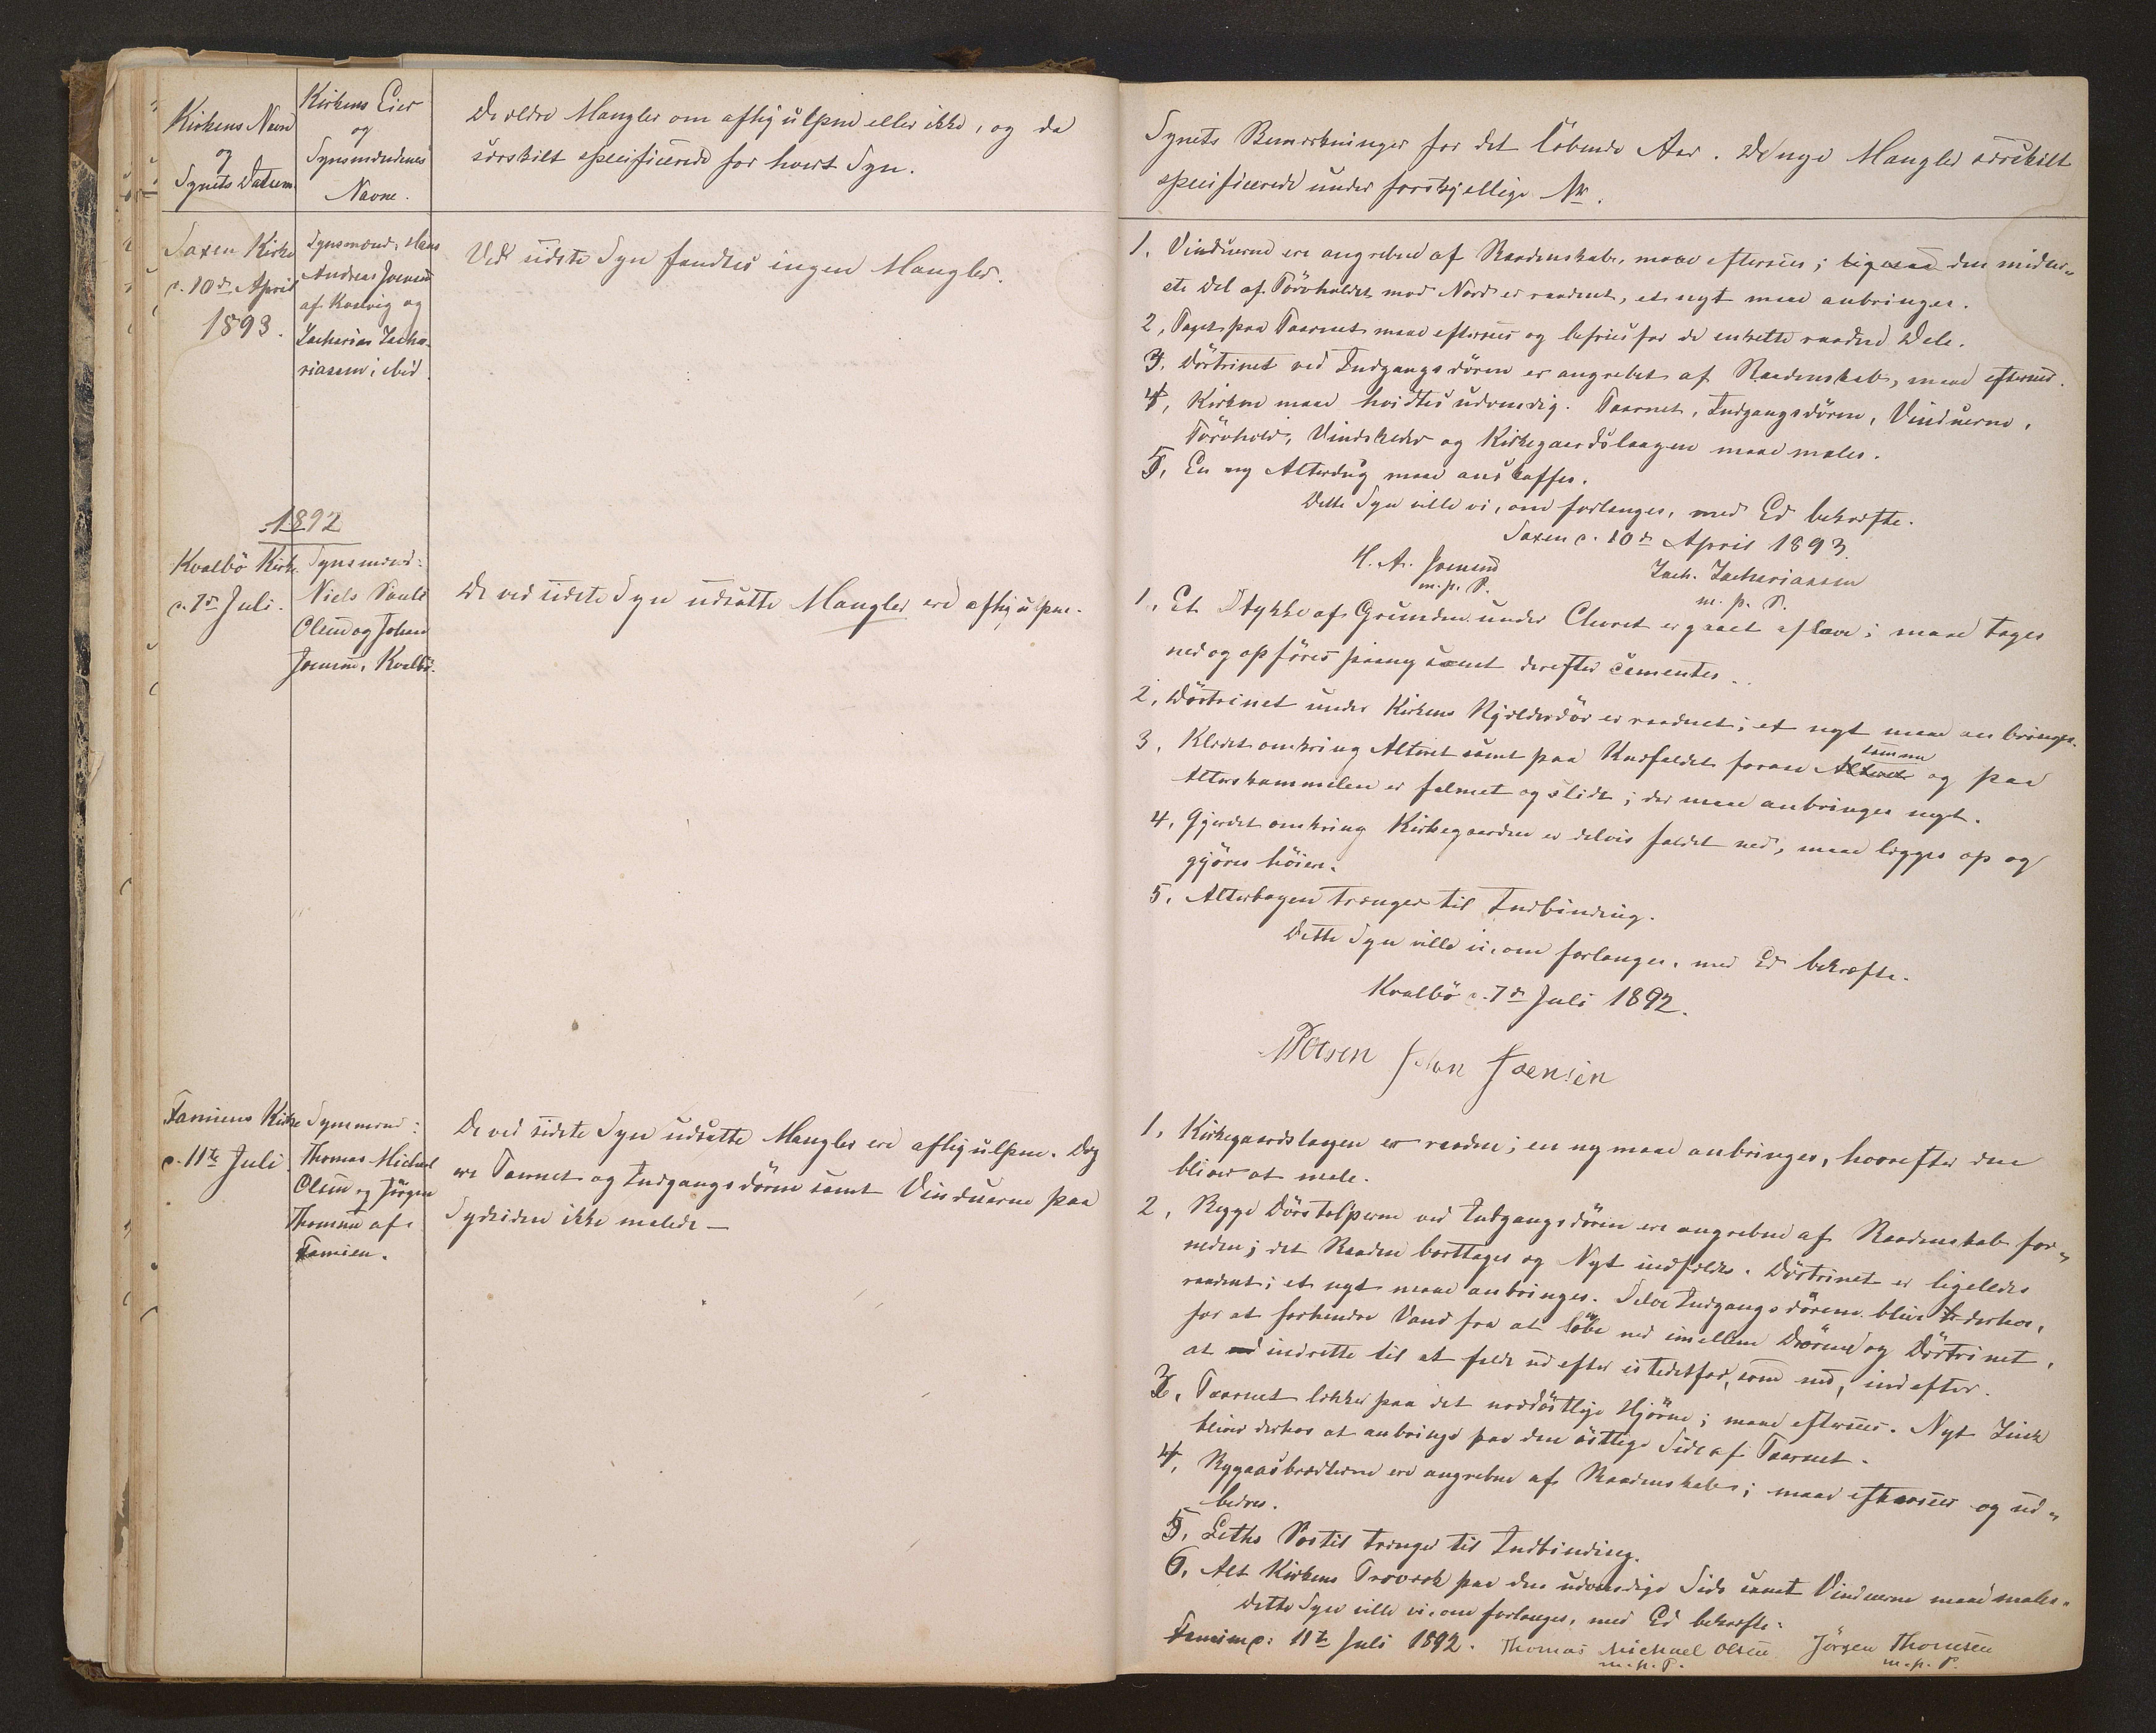 Kirkens Navn
og
Synets Datum
Kirkens Eier
og
Synsmændenes
Navne.
De ældre Mangler om afhjulpne eller ikke, og da
særskilt specificerede for hvert Syn.
Saxen Kirke
d. 10de April
1893.
Synsmænd: Hans
Andreas Joensen
af Kosevig og
Zacharias Zacha-
riassen, ibid.
Ved sidste Syn fandtes ingen Mangler.
1892
Kvalbø Kirke
d. 7de Juli.
Synsmænd:
Niels Poule
Olsen og Johan
Joensen, Kvalbø.
De ved sidste Syn udsatte Mangler ere afhjulpne.
Famiens Kirke
d. 11te Juli
Synsmænd:
Thomas Michael
Olsen og Jørgen
Thomsen af
Famien.
De ved sidste Syn udsatte Mangler ere afhjulpne. Dog
ere Taarnet og Indgangsdøren samt Vinduerne paa
Sydsiden ikke malede —
Synets Bemærkninger for det løbende Aar. De nye Mangler særskilt
specificerede under forskjellige Nr.
1. Vinduerne ere angrebne af Raadenskab, maae eftersees; ligesaa den nider-
ste Del af Tørvholdet mod Nord er raadent, et nyt maae anbringes.
2. Taget paa Taarnet maae eftersees og befries for de enkelte raadne Dele.
3. Dørtrinet ved Indgangsdøren er angrebet af Raadenskab, maae eftersees.
4. Kirken maae hvidtes udvendig. Taarnet, Indgangsdøren, Vinduerne,
Tørvhold, Vindskeder og Kirkegaardslaagen maae males.
5. En ny Alterdug maae anskaffes.
Dette Syn ville vi, om forlanges, med Ed bekræfte.
Saxen d. 10de April 1893.
H. A. Joensen
m. p. P.
Zach. Zachariassen
m. p. P.
1. Et Stykke af Grunden under Choret er gaaet af Lave; maae tages
ned og opføres paany samt derefter cementes.
2. Dørtrinet under Kirkens Hjælderdør er raadnet; et nyt maae anbringes.
3. Klædet omkring Alteret samt paa Knæfaldet foran Alteret samme og paa
Alterskammelen er falmet og slidt; der maae anbringes nyt.
4. Gjerdet omkring Kirkegaarden er delvis faldet ned, maae lægges op og
gjøres høiere.
5. Alterbogen trænger til Indbinding.
Dette Syn ville vi, om forlanges, med Ed bekræfte.
Kvalbø d. 7de Juli 1892.
NPOlsen Johan Joensen
1. Kirkegaardslaagen er raaden; en ny maae anbringes, hvorefter den
bliver at male.
2. Begge Dørstolperne ved Indgangsdøren ere angrebne af Raadenskab for-
neden; det Raadne borttages og Nyt indfældes. Dørtrinet er ligeledes
raadent; et nyt maae anbringes. Selve Indgangsdørene blive derhos,
for at forhindre Vand fra at løbe ned imellem Dørene og Dørtrinet,
at indrette til at falde ud efter istedetfor, som nu, indefter.
3. Taarnet lækker paa det nordøstlige Hjørne; maae eftersees. Nyt Zink
bliver derhos at anbringe paa den østlige Side af Taarnet.
4. Rygaasbrædterne ere angrebne af Raadenskab; maae eftersees og ud-
bedres.
5. Leths Postil trænger til Indbinding.
6. Alt Kirkens Træværk paa den udvendige Side samt Vinduerne maae males.
Dette Syn ville vi, om forlanges, med Ed bekræfte.
Famien d. 11te Juli 1892. Thomas Michael Olsen Jörgen Thomsen
m. p. P. m. p. P.